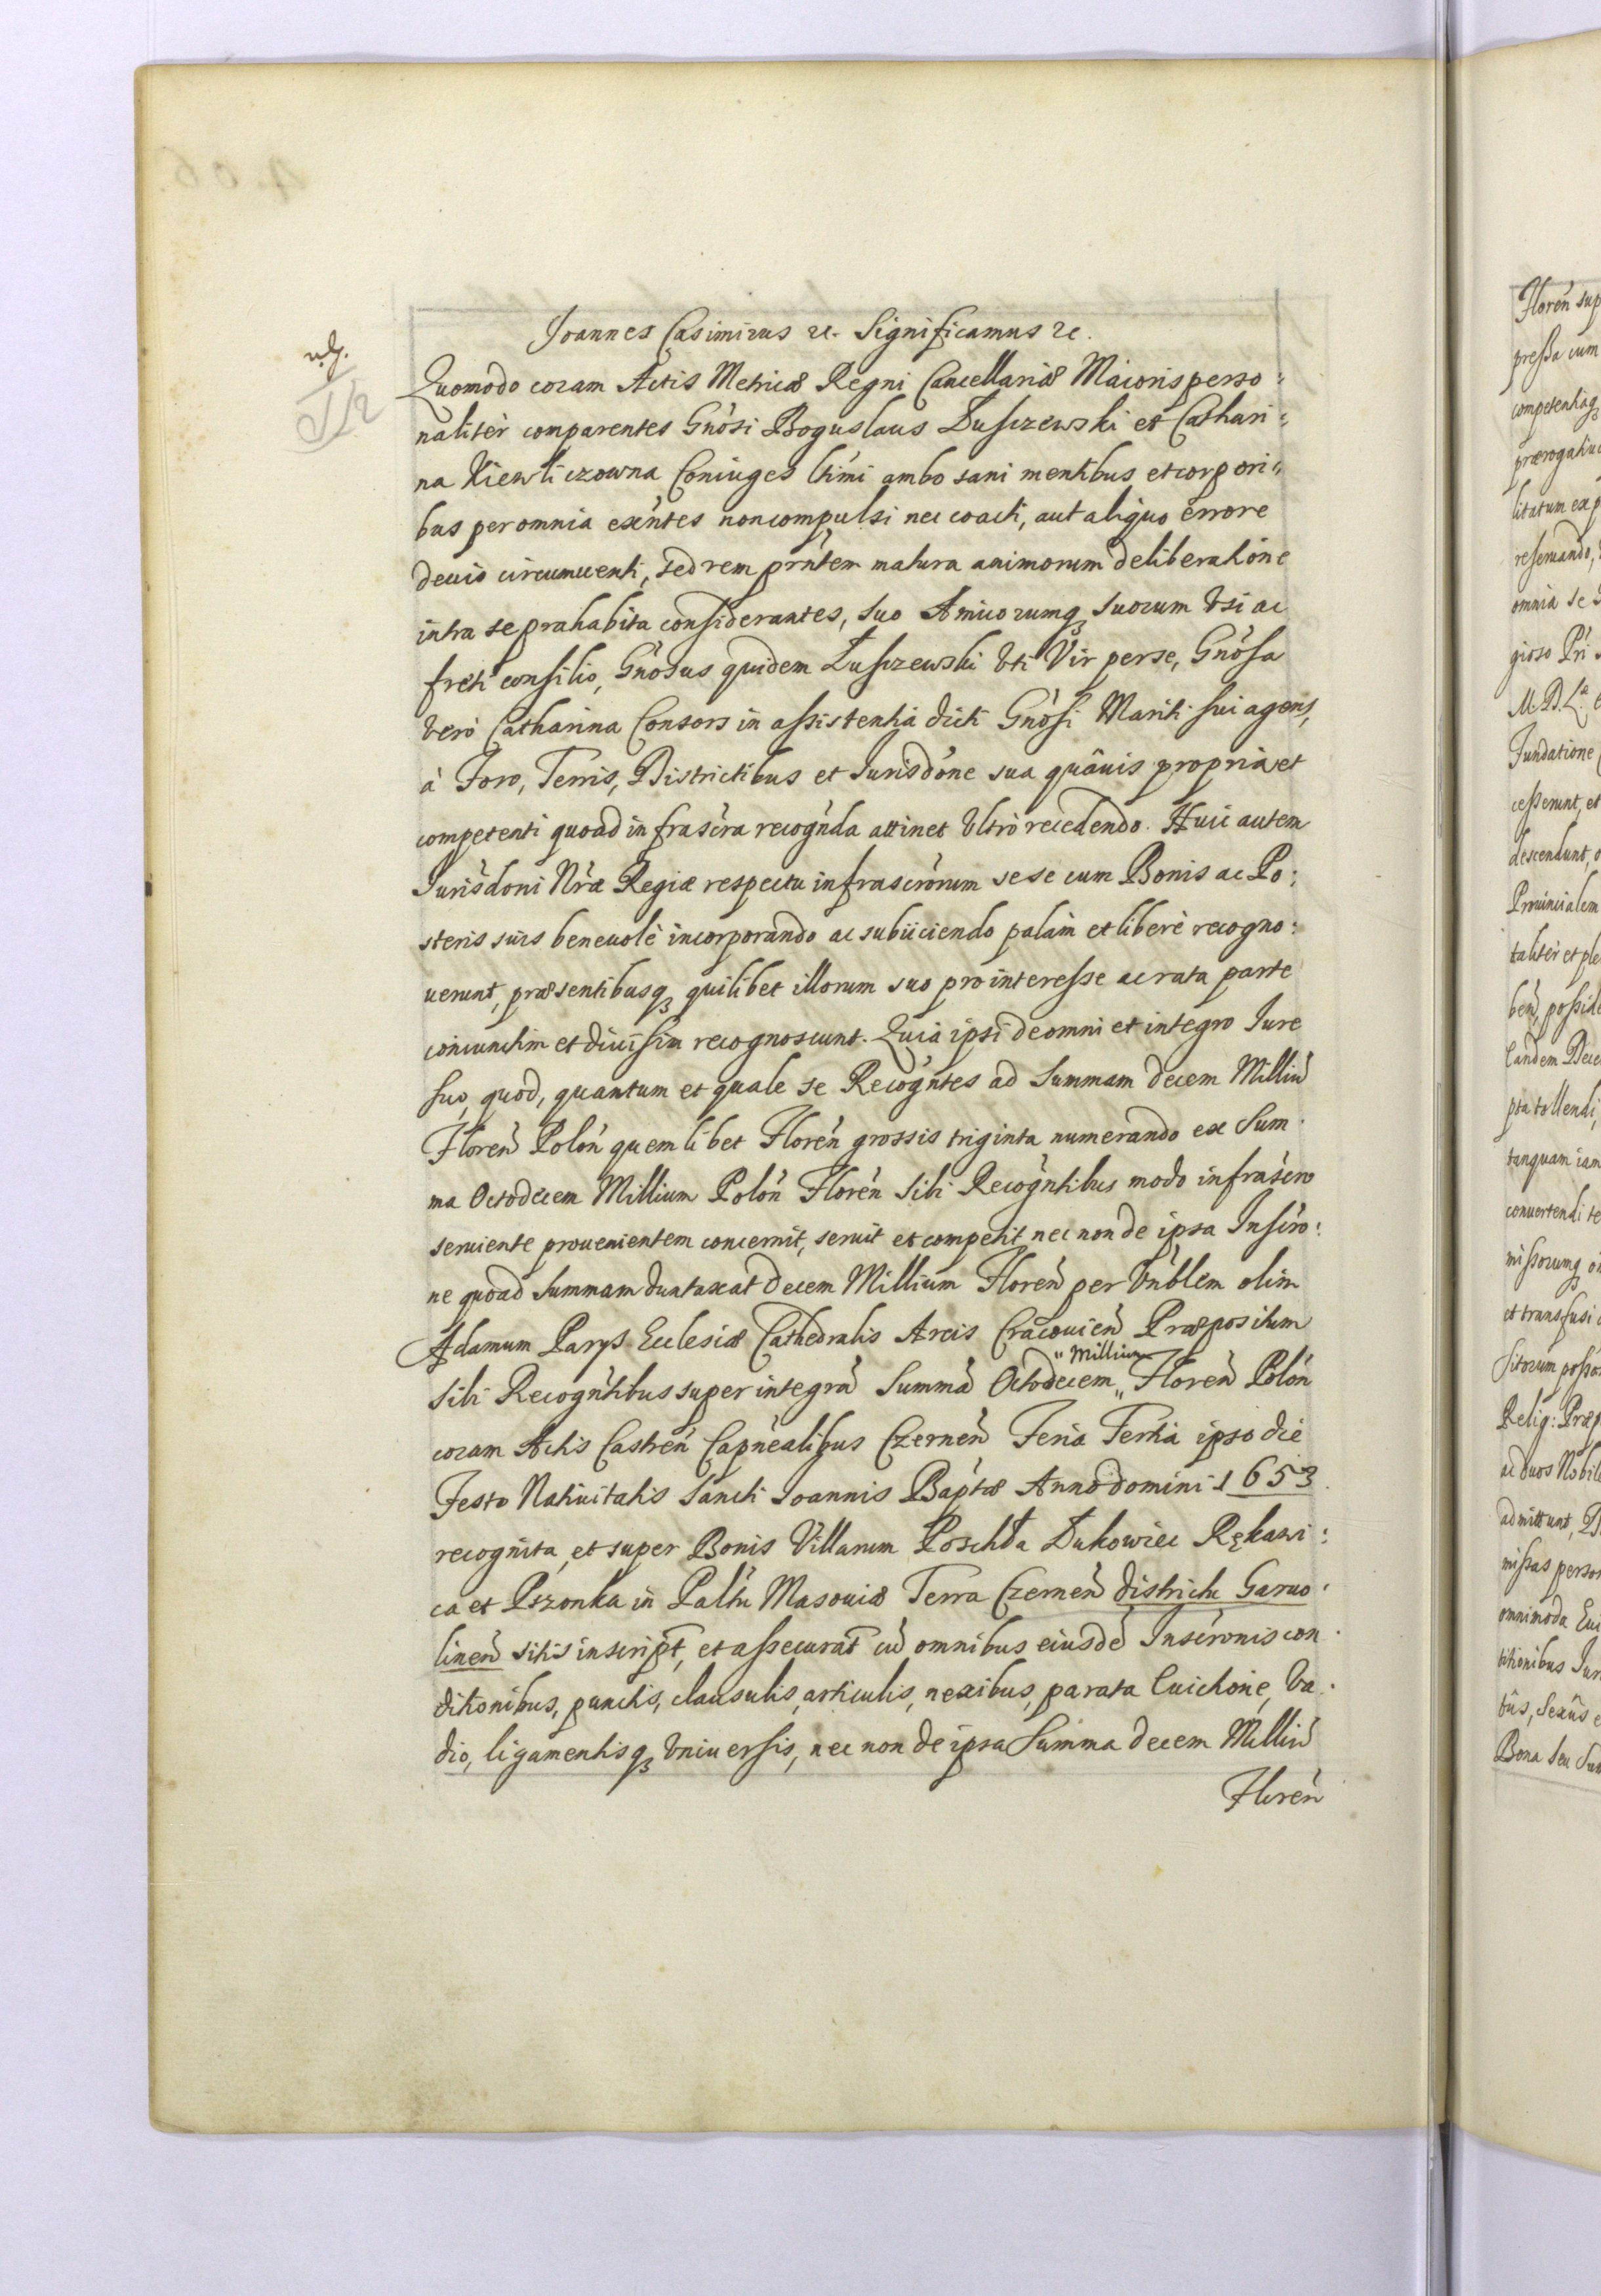 Joannes Casimirus etc. Significamus etc.
Quomodo coram Actis Metricæ Regni Cancellariæ Maioris perso:
nalitèr comparentes Gnõsi Boguslaus Łuszczewski et Cathari:
na Kiewliczowna Coniuges ltimi ambo sani mentibus et corpori:
bus per omnia exẽntes non compulsi nec coacti, aut aliquo errore
deuio circumuenti, sed rem prñtem matura animorum deliberatione
intra se præhabita considerantes, suo Amicorumq suorum Vsi ac
freti consilio, Gnõsus quidem Łuszczewski Vti Vir per se, Gnõsa
Vero Catharina Consors in assistentia dicti Gnõsi Mariti sui agens,
à Foro, Terris, Districtibus et Jurisdõne sua quâuis propria et
competenti quoad infrascra recognda attinet Vltrò recedendo. Huic autem
Jurisdõni Nræ Regiæ respectu infrascrõrum sese cum Bonis ac Po:
steris suis beneuolè incorporando ac subiiciendo palàm et liberè recogno:
uerunt, præsentibusq quilibet illorum suo pro interesse ac rata parte
coniunctim et diuisim recognoscunt. Quia ipsi de omni et integro Jure
suo, quod, quantum et quale se Recogñtes ad Summam decem Milliũ
Floreñ Poloñ quemlibet Floreñ grossis triginta numerando ex Sum:
ma Octodecem Millium Poloñ Floreñ sibi Recogñtibus modo infrascro
seruiente prouenientem concernit, seruit et competit nec non de ipsa Inscro:
ne quoad Summam duntaxat decem Millium Floreñ per Vñblem olim
Adamum Parys Ecclesiæ Cathedralis Arcis Cracouieñ Præpositum
"Millium
sibi Recogñtibus super integrã Summã Octodecem" Floreñ Poloñ
coram Actis Castreñ Capñealibus Czerneñ Feria Tertia ipso die
Festo Natiuitatis Sancti Joannis Baptæ Anno domini 1653
recognita, et super Bonis Villarum Poschła Łukowiec Rękawi:
ca et Pszonka in Palttu Masouiæ Terra Czerneñ districtu Garuo:
lineñ sitis inscript, et assecurat cũ omnibus eiusdẽ Inscronis con:
ditionibus, punctis, clausulis, articulis, nexibus, parata Euictione, Va:
dio, ligamentisq Vniuersis, nec non de ipsa Summa decem Milliũ
Floreñ